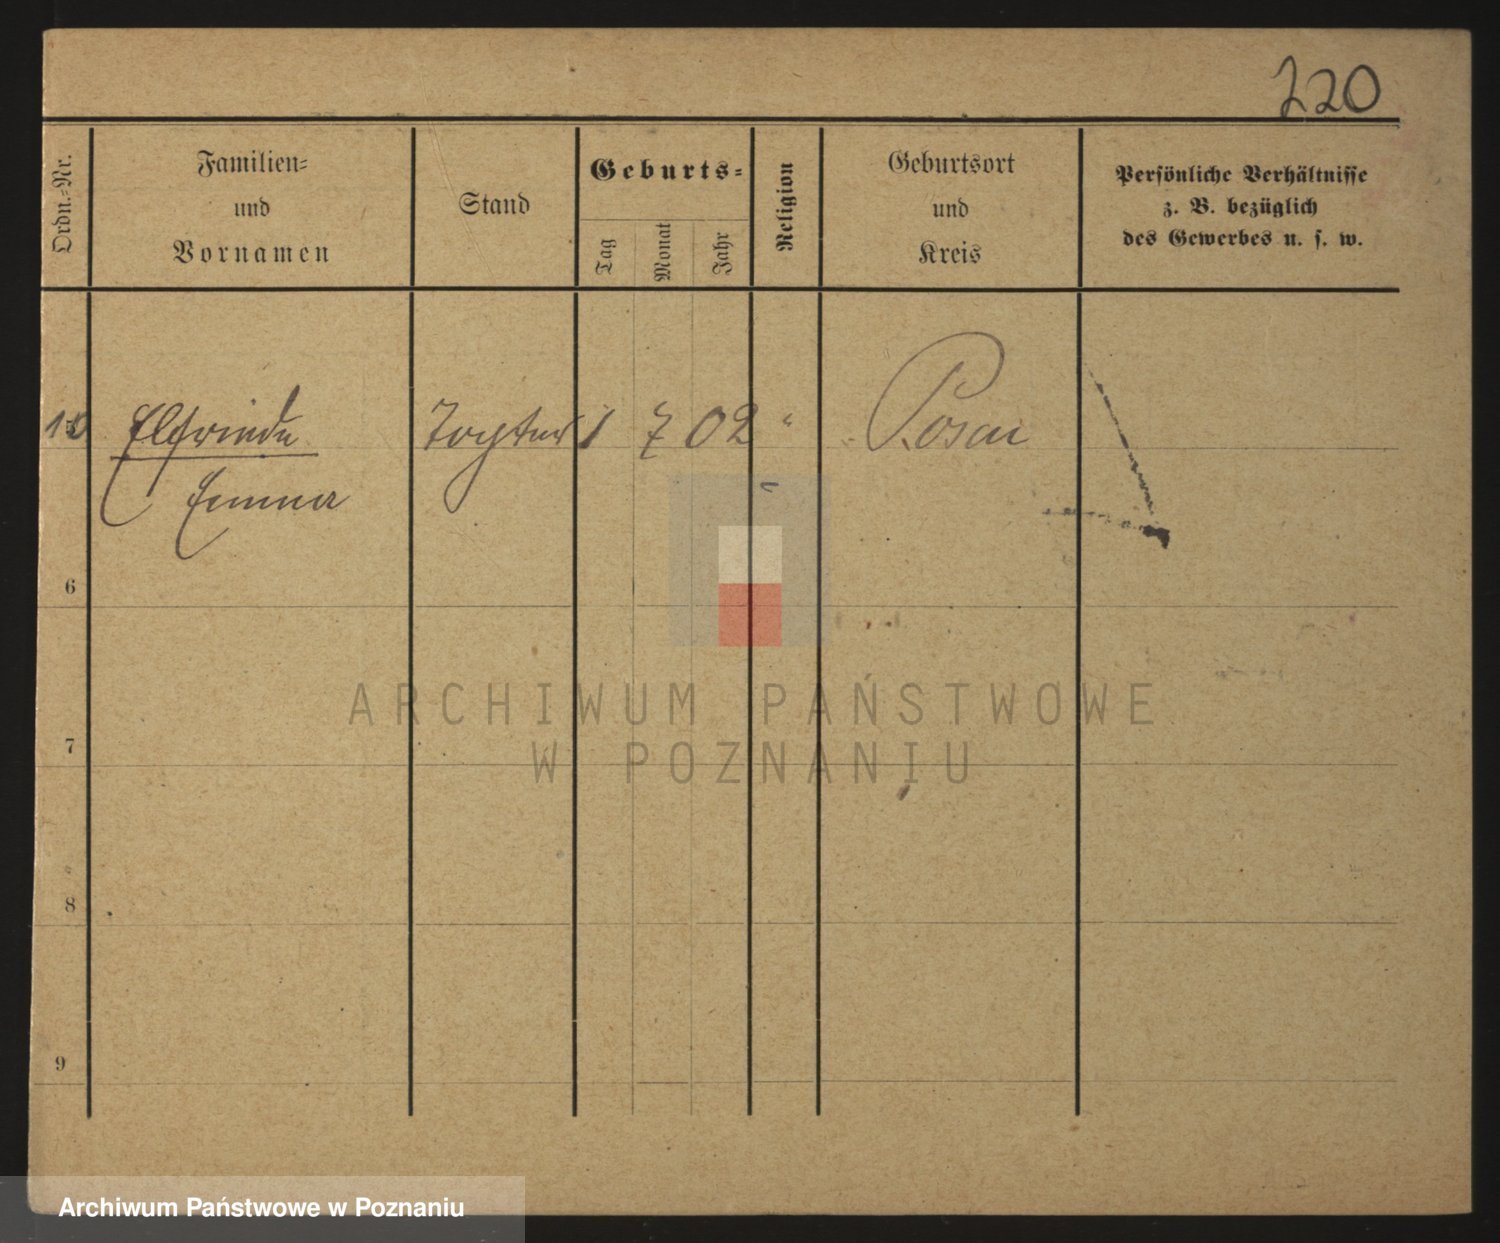 220
Ordn.-Nr.
Familien-
und
Vornamen
Stand
Geburts-
Tag
Monat
Jahr
Religion
Geburtsort
und
Kreis
Persönliche Verhältnisse
z. B. bezüglich
des Gewerbes u. s. w.
10 Elfriede Tochter 1 7 02 " Posen
Emma
6
7
8
9
ARCHIWUM PAŃSTWOWE
W POZNANIU
Archiwum Państwowe w Poznaniu